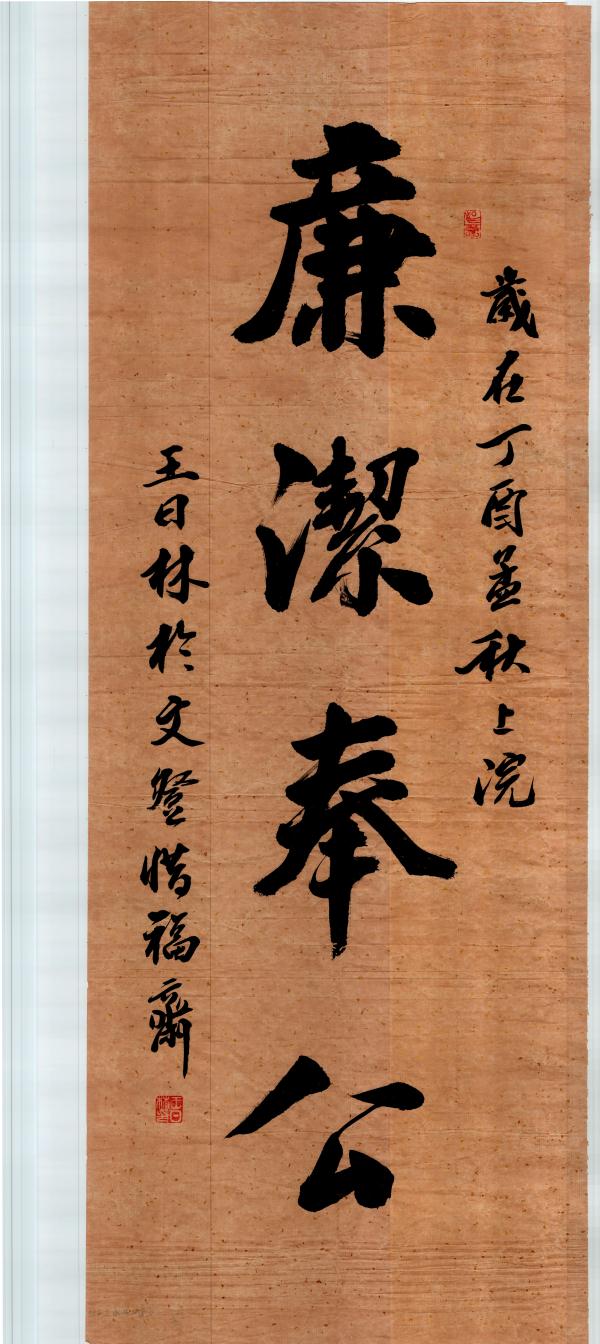 歲在丁酉孟秋上浣
廉潔奉公
王日林於文登惜福齋